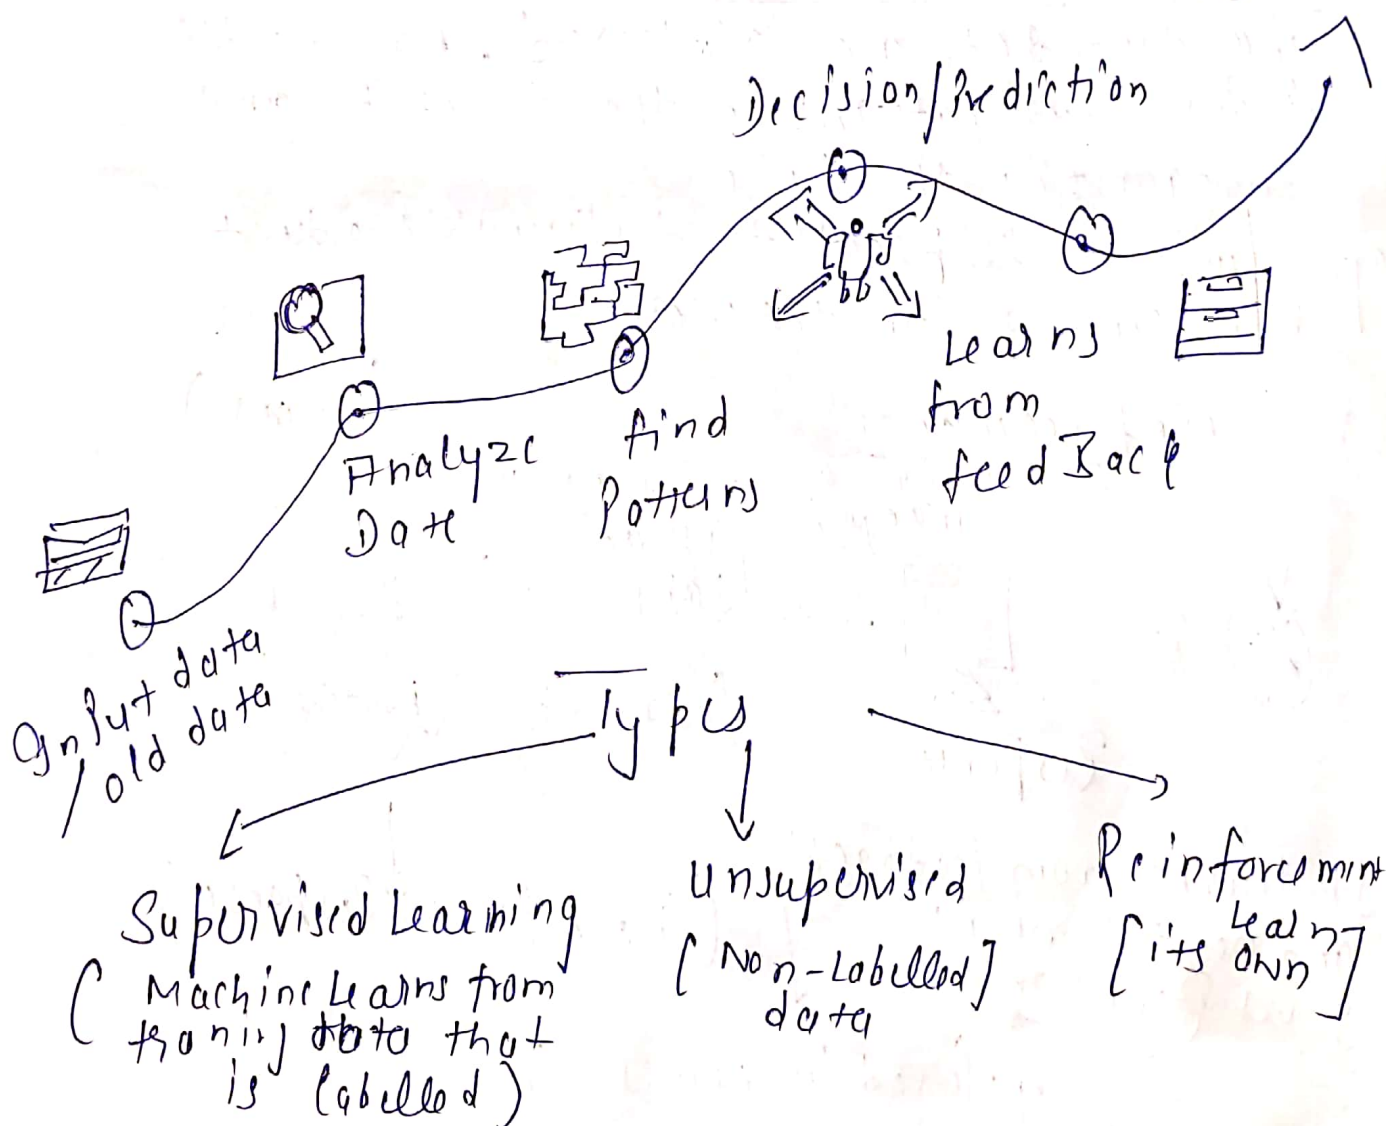 Decision/Prediction
Learns
from
feedBack
find
Patterns
Analyze
Date
Input data
/old data
Types
Supervised Learning
(Machine Learns from
traning data that
is labelled)
Unsupervised
[Non-Labelled]
data
Reinforcement
Learn
[its own]